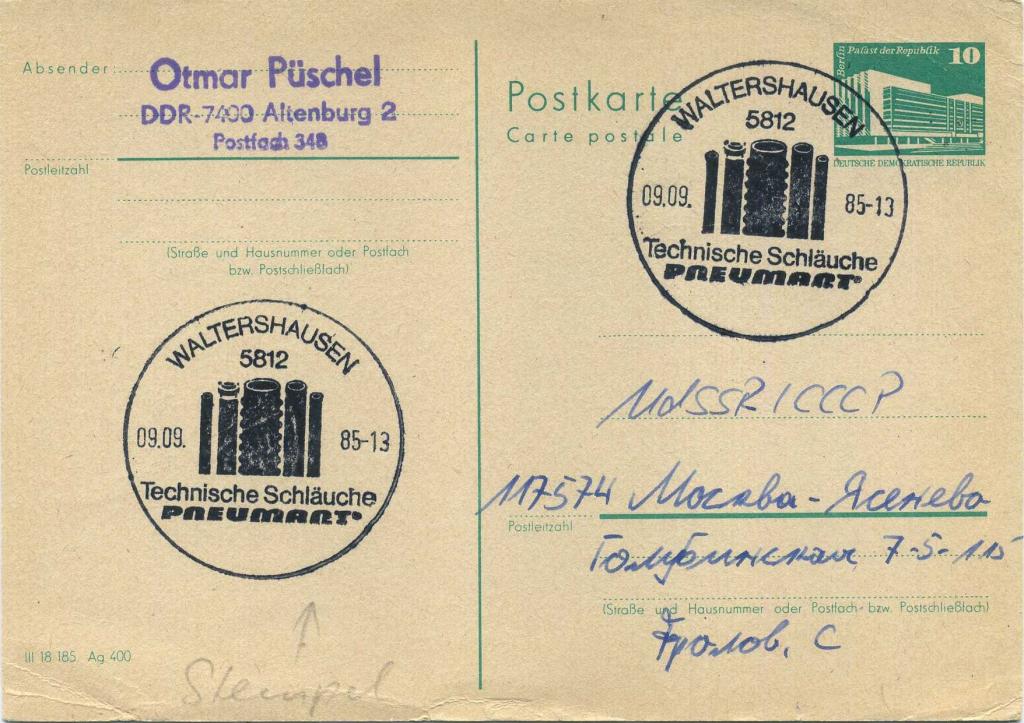 Absender:
Otmar Püschel
DDR-7400 Altenburg 2
Postfach 348
Postleitzahl
(Straße und Hausnummer oder Postfach
bzw. Postschließfach)
WALTERSHAUSEN
5812
09.09. 85-13
Technische Schläuche
PNEUMANT®
Stempel
III 18 185 Ag 400
Postkarte
Carte postale
Berlin
Palast der Republik 10
DEUTSCHE DEMOKRATISCHE REPUBLIK
WALTERSHAUSEN
5812
09.09. 85-13
Technische Schläuche
PNEUMANT®
UdSSR/СССР
117574 Москва-Ясенево
Postleitzahl
Голубинская 7-5-115
(Straße und Hausnummer oder Postfach bzw. Postschließfach)
Фролов, С